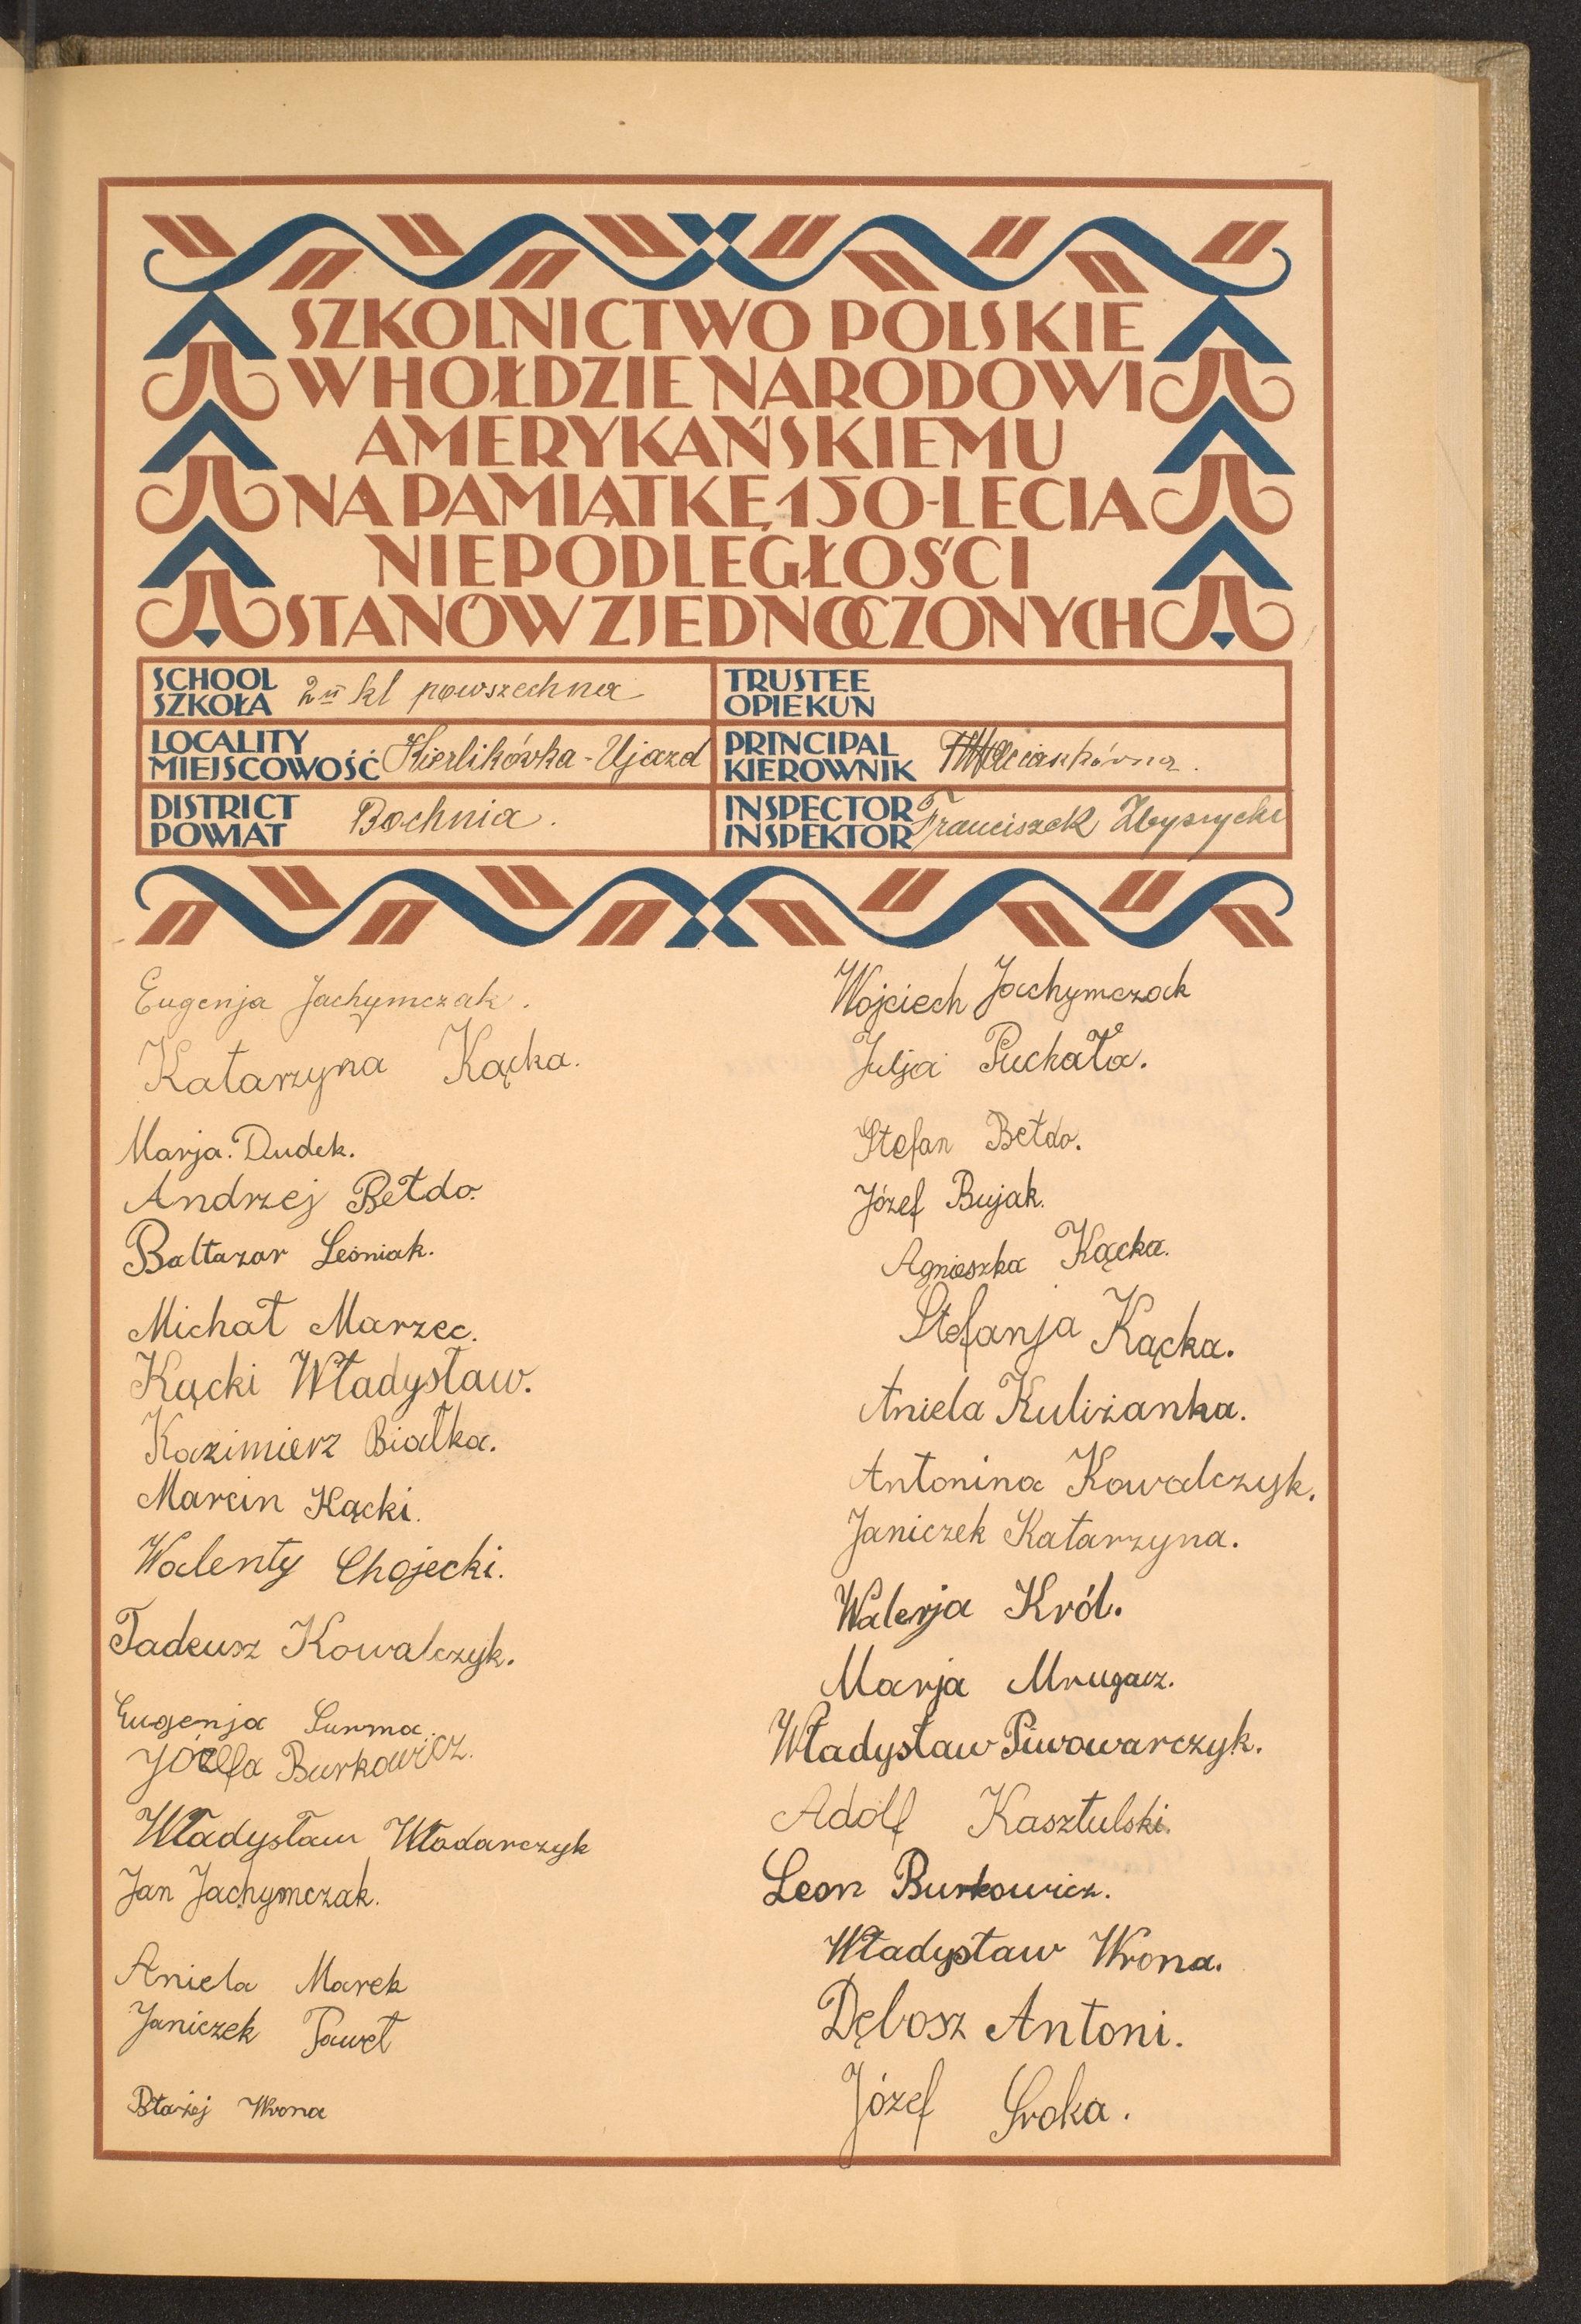 SZKOLNICTWO POLSKIE
W HOŁDZIE NARODOWI
AMERYKAŃSKIEMU
NA PAMIĄTKĘ 150-LECIA
NIEPODLEGŁOŚCI
STANÓW ZJEDNOCZONYCH
SCHOOL
SZKOŁA 2 kl powszechna
TRUSTEE
OPIEKUN
LOCALITY
MIEJSCOWOŚĆ Kierlikówka-Ujazd
PRINCIPAL
KIEROWNIK
DISTRICT
POWIAT Bochnia.
INSPECTOR
INSPEKTOR Franciszek
Eugenja Jachymczak.
Katarzyna Kącka.
Marja. Dudek.
Andrzej Bełdo.
Baltazar Leśniak.
Michał Marzec.
Kącki Władysław.
Kazimierz Białka.
Marcin Kącki.
Walenty Chojecki.
Tadeusz Kowalczyk.
Eugenja Surma.
Józefa Burkowicz.
Władysław Włodarczyk
Jan Jachymczak.
Aniela Marek
Janiczek Paweł
Błażej Wrona
Wojciech Jachymczak
Julja Puchała.
Stefan Bełdo.
Józef Bujak.
Agnieszka Kącka.
Stefanja Kącka.
Aniela Kuliżanka.
Antonina Kowalczyk.
Janiczek Katarzyna.
Walerja Król.
Marja Mrugacz.
Władysław Piwowarczyk.
Adolf Kasztulski.
Leon Burkowicz.
Władysław Wrona.
Dębosz Antoni.
Józef Sroka.